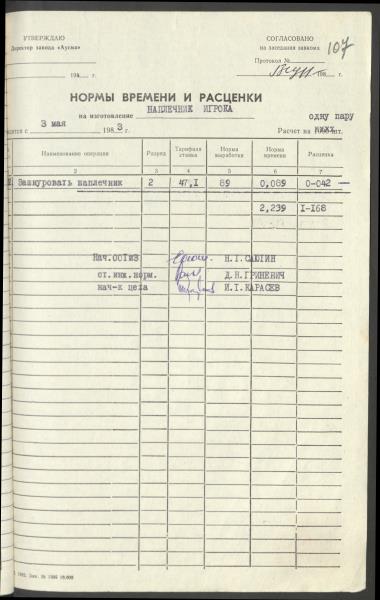 УТВЕРЖДАЮ
Директор завода «Аусма»
198 г.
СОГЛАСОВАНО
на заседании завкома
Протокол №
198 г.
107
НОРМЫ ВРЕМЕНИ И РАСЦЕНКИ
на изготовление НАПЛЕЧНИК ИГРОКА
с 3 мая 1983 г.
одну пару
Расчет на шт.
Наименование операции Разряд Тарифная ставка Норма выработки Норма времени Расценка
2 3 4 5 6 7
Зашнуровать наплечник 2 47,I 89 0,089 0-042 —
2,239 I-I68
Нач.ООТиЗ Н.Т.САЮТИН
ст.инж.норм. Д.Н.ГРИНЕВИЧ
нач-к цеха И.Т.КАРАСЕВ